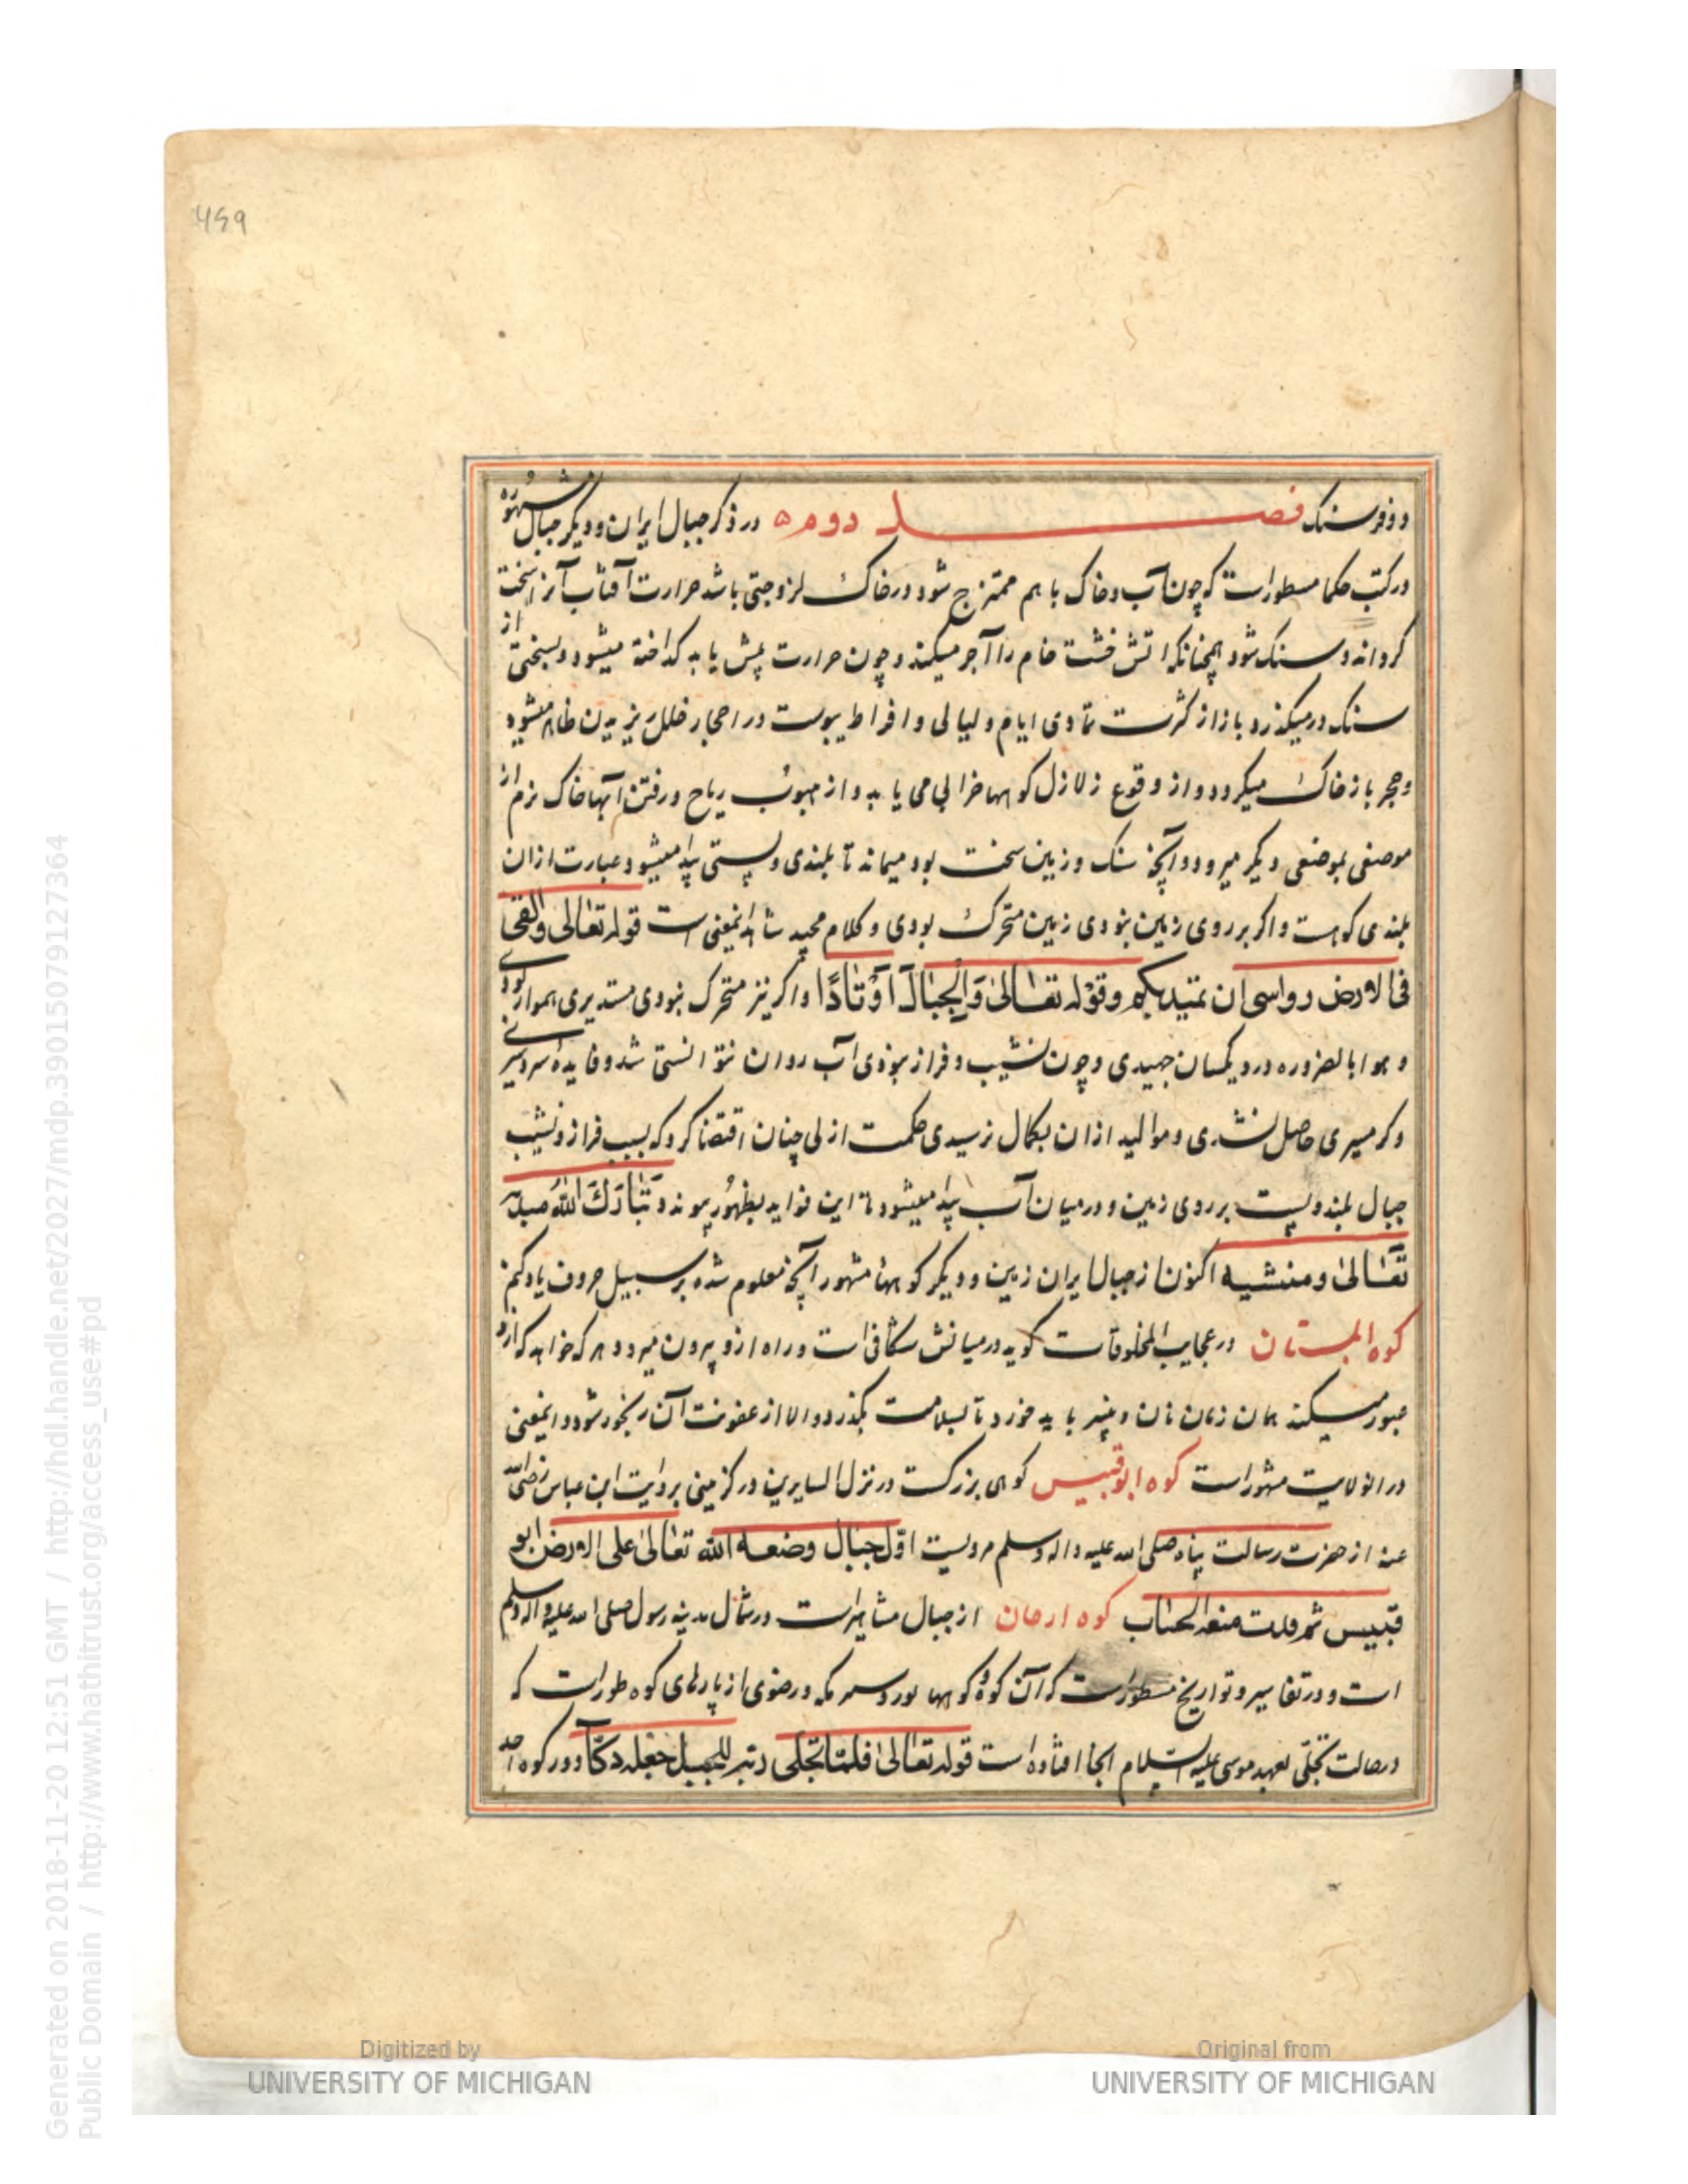 459
دو فرسنک فصل دوم ه در ذکر جبال ایران و دیکر جبال مشهوره
در کتب حکما مسطور است که چون آب و خاک با هم ممتزج شود و در خاک لزوجتی باشد حرارت آفتاب آنرا سخت
کرداند و سنک شود همچنانکه اتش خشت خام را آجر میکند و چون حرارت بیش یابد کداخته میشود و بسختی از
سنک درمیکذرد و باز از کثرت تمادی ایام و لیالی و افراط یبوست در احجار خلل ریزیدن ظاهر میشود
و حجر باز خاک میکردد و از وقوع زلازل کوهها خرابی می یابد و از هبوب ریاح و رفتن آبها خاک نرم از
موضعی بموضعی دیکر میرود و آنچه سنک و زمین سخت بود میماند تا بلندی و پستی پیدا میشود و عبارت ازان
بلندی کوهست و اکر بر روی زمین نبودی زمین متحرک بودی و کلام مجید شاهد اینمعنی است قوله تعالی والقی
فی الارض رواسی ان تمیدبکم وقوله تعالی وَالجِبَالَ اَوتَادًا و اکر نیز متحرک نبودی مستدیری هموار بودی
و هوا بالضروره درو یکسان جهیدی و چون نشیب و فراز نبودی آب روان نتوانستی شد و فایده سردسیری
و کرمسیری حاصل نشدی و موالید ازان بکمال نرسیدی حکمت ازلی چنان اقتضا کرد که بسبب فراز و نشیب
جبال بلند و پست بر روی زمین و در میان آب پیدا میشود تا این فواید بظهور پیوندد تَبَارَکَ اللهُ
تعالی ومنشیه اکنون از جبال ایران زمین و دیکر کوهها مشهور آنچه معلوم شده بر سبیل حروف یاد کنم
کوه البستان در عجایب المخلوقات کوید در میانش شکافی است و راه ازو بیرون میرود هر که خواهد که ازو
عبور میکند همان زمان نان و پنیر باید خورد تا بسلامت بکذرد و الا از عفونت آن رنجور شود و اینمعنی
در انولایت مشهور است کوه ابوقبیس کوهی بزرکست در نزل السایرین در کزمینی بروایت ابن عباس رضی الله
عنه از حضرت رسالت پناه صلی الله علیه واله وسلم مرویست اوّل جبال وضعه الله تعالی علی الارض ابو
قبیس ثم الجبال کوه ارحان از جبال مشاهیر است در شمال مدینه رسول صلی الله علیه واله وسلم
است و در تفاسیر و تواریخ مسطور است که آن کوه و کوهها مکه و رضوی از پارهای کوه طور است که
در حالت تجلّی بعهد موسی علیه السلام انجا افتاده است قوله تعالی فلما تجلی ربه للجبل جعله دکّا و در کوه احد
Digitized by
UNIVERSITY OF MICHIGAN
Original from
UNIVERSITY OF MICHIGAN
Generated on 2018-11-20 12:51 GMT / http://hdl.handle.net/2027/mdp.39015079127364
Public Domain / http://www.hathitrust.org/access_use#pd